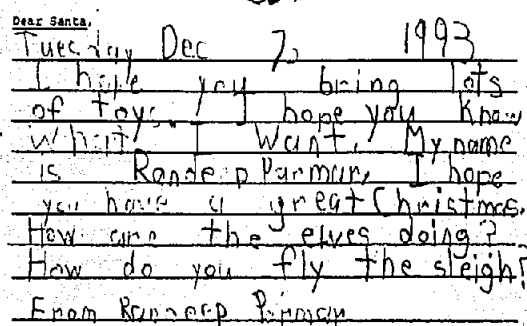 Dear Santa,
Tuesday Dec 7, 1993
I hope you bring lots
of toys. I hope you know
what I want. My name
is Randeep Parmar, I hope
you have a great Christmas.
How are the elves doing?
How do you fly the sleigh?
From Randeep Parmar